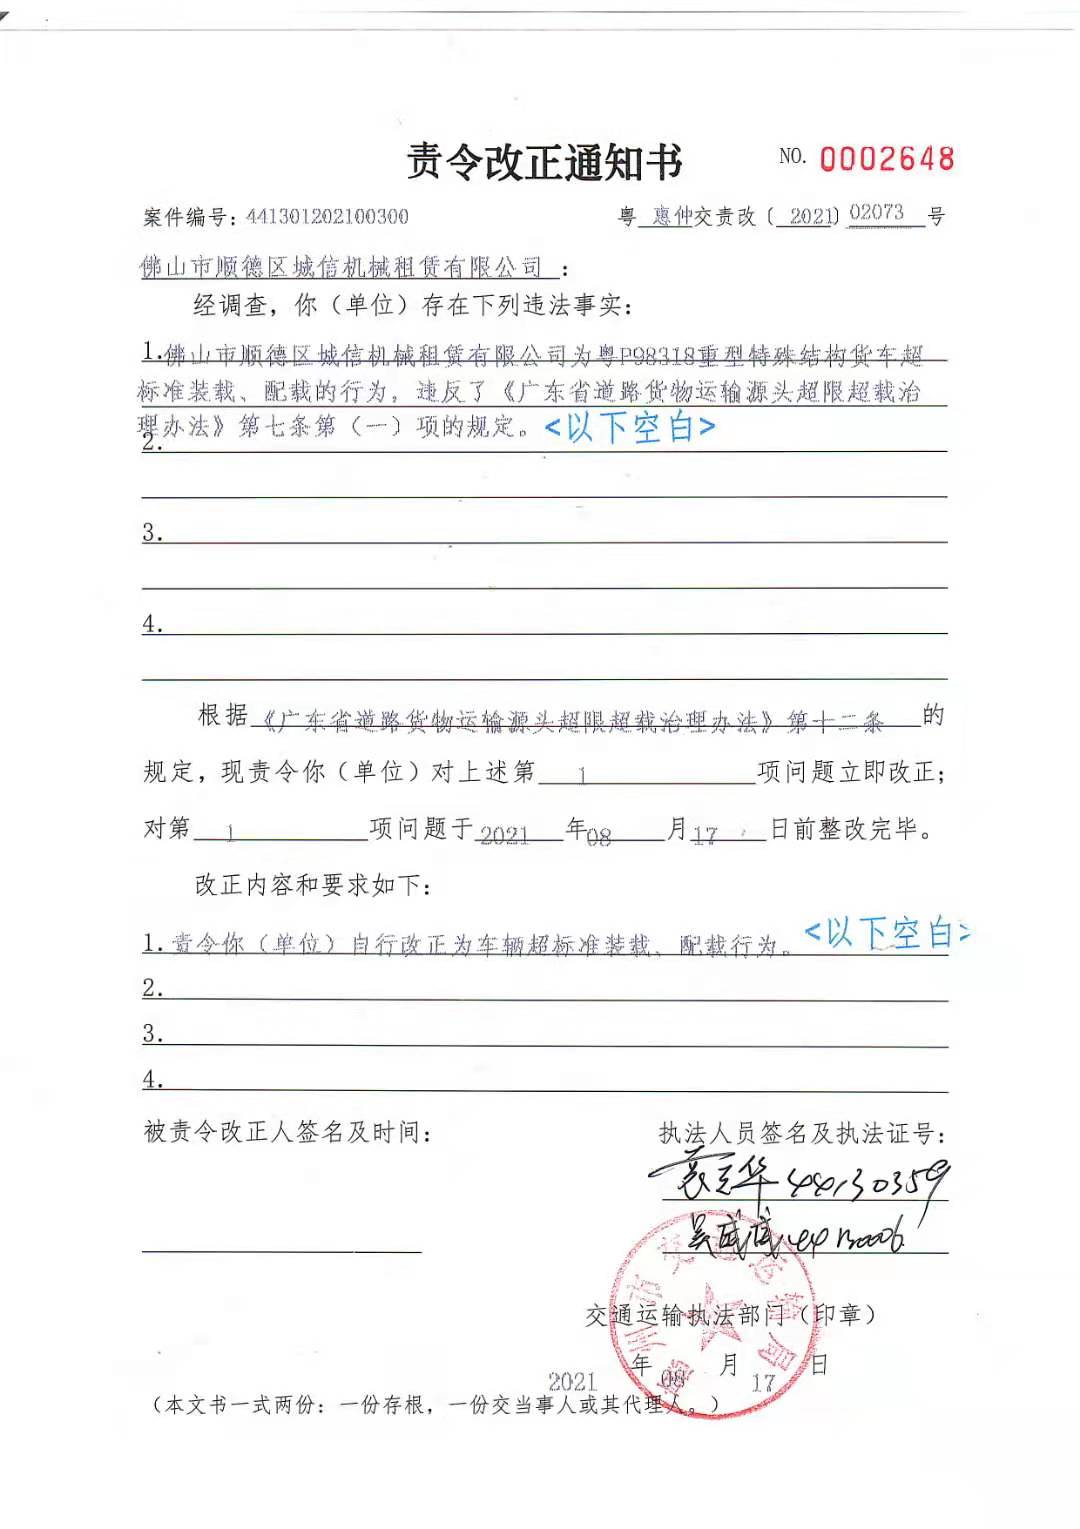 责令改正通知书
NO. 0002648
案件编号：441301202100300
粤 惠仲交责改〔 2021〕02073 号
佛山市顺德区城信机械租赁有限公司：
经调查，你（单位）存在下列违法事实：
1.佛山市顺德区城信机械租赁有限公司为粤P98318重型特殊结构货车超
标准装载、配载的行为，违反了《广东省道路货物运输源头超限超载治
理办法》第七条第（一）项的规定。<以下空白>
2.
3.
4.
根据《广东省道路货物运输源头超限超载治理办法》第十二条 的
规定，现责令你（单位）对上述第 1 项问题立即改正；
对第 1 项问题于2021年08月17日前整改完毕。
改正内容和要求如下：
1.责令你（单位）自行改正为车辆超标准装载、配载行为。<以下空白>
2.
3.
4.
被责令改正人签名及时间：
执法人员签名及执法证号：
44130359
惠州市交通运输局
交通运输执法部门（印章）
2021年08月17日
（本文书一式两份：一份存根，一份交当事人或其代理人。）